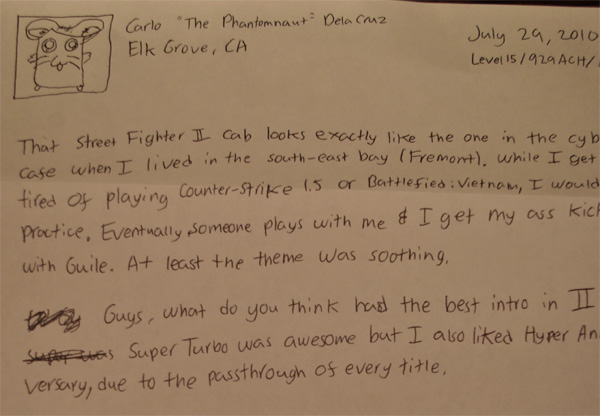 Carlo "The Phantomnaut" Dela Cruz
Elk Grove, CA
July 29, 2010
Level 15/929 ACH/
That Street Fighter II cab looks exactly like the one in the cyb
case when I lived in the south-east bay (Fremont). While I get
tired of playing Counter-Strike 1.5 or Battlefied: Vietnam, I would
practice. Eventually, someone plays with me & I get my ass kick
with Guile. At least the theme was soothing.
Guys, what do you think had the best intro in II
Super Turbo was awesome but I also liked Hyper An
versary, due to the passthrough of every title.